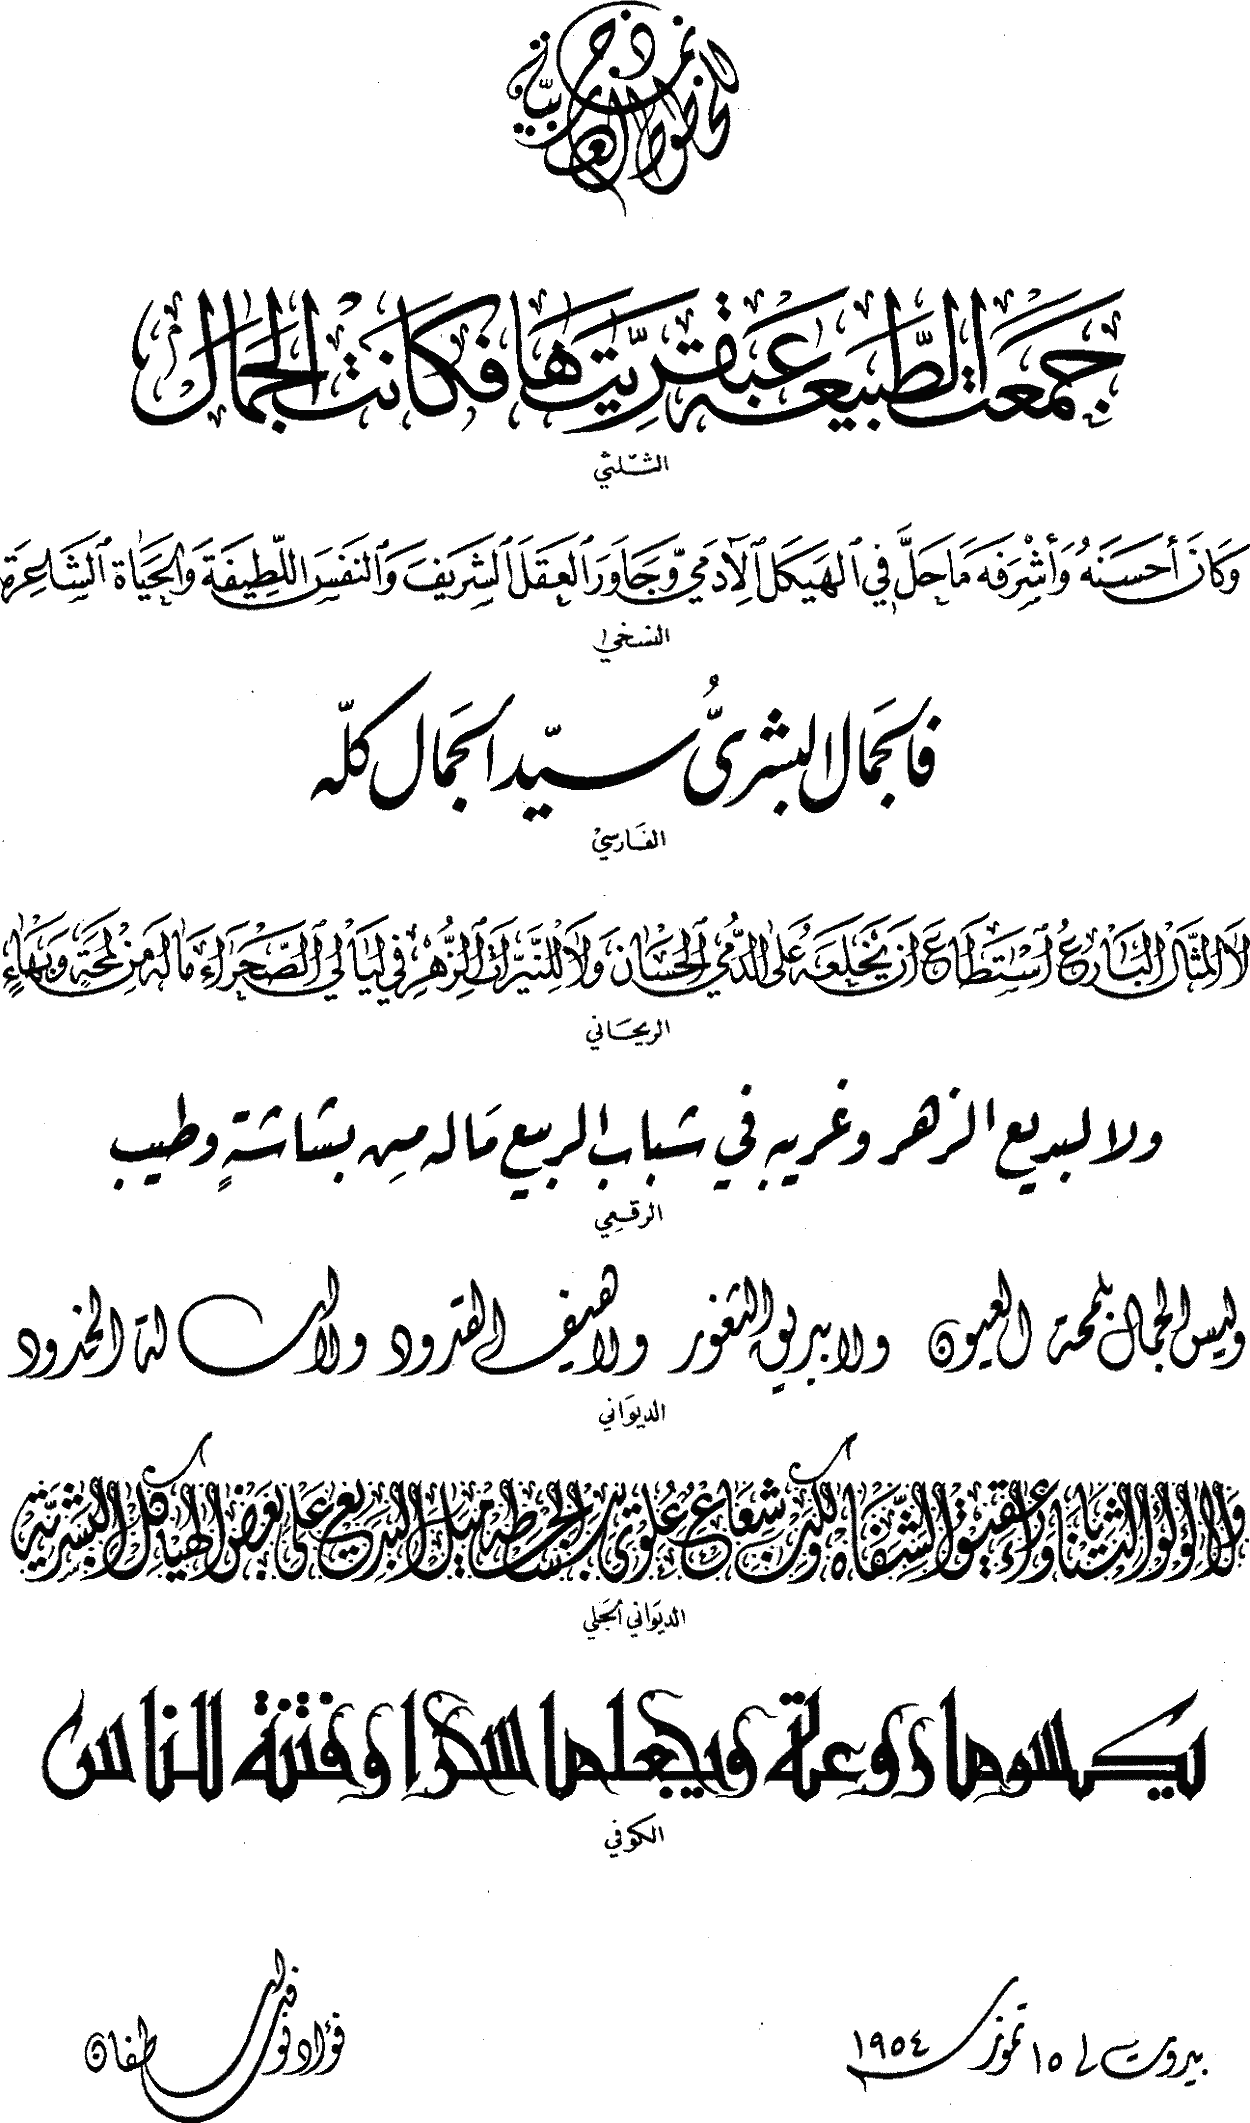 نماذج الخطوط العربية
جمعت الطّبيعة عبقريّتها فكانت الجمال
الثّلثي
وَكَانَ أحسَنَهُ وَأشْرفَه مَا حَلَّ في الهَيكل الآدمَي وَّجَاوَرَ العَقلَ الشريفَ وَالنفسَ اللّطِيفَةَ وَالحَيَاة الشاعِرَة
النسخي
فالجمال البشريُّ سيّد الجمال كلّه
الفارسيّ
لا المثّال البَارعُ استطَاعَ ان يَخلعَه عَلى الدّمى الحسَان وَلا للنيّرات الزّهْر في ليَالي الصّحْرَاء مَا لَه مِنْ لمحَةٍ وَبَهاءٍ
الريحاني
ولا لبديع الزهر وغريبه في شباب الربيع مَا له مِن بشاشةٍ وطيب
الرقعي
وليس الجمال بلمحة العيون ولا ببريق الثغور ولا هيف القدود ولا أسالة الخدود
الديواني
ولا لؤلؤ الثنايا وراء عقيق الشفاه ولكن شعاع علوي يبسطه الجميل البديع على بعض الهياكل البشرية
الديواني الجلي
يكسوها روعة ويجعلها سحرا وفتنة للناس
الكوفي
بيروت في ١٥ تموز ١٩٥٤
فؤاد اسطفان